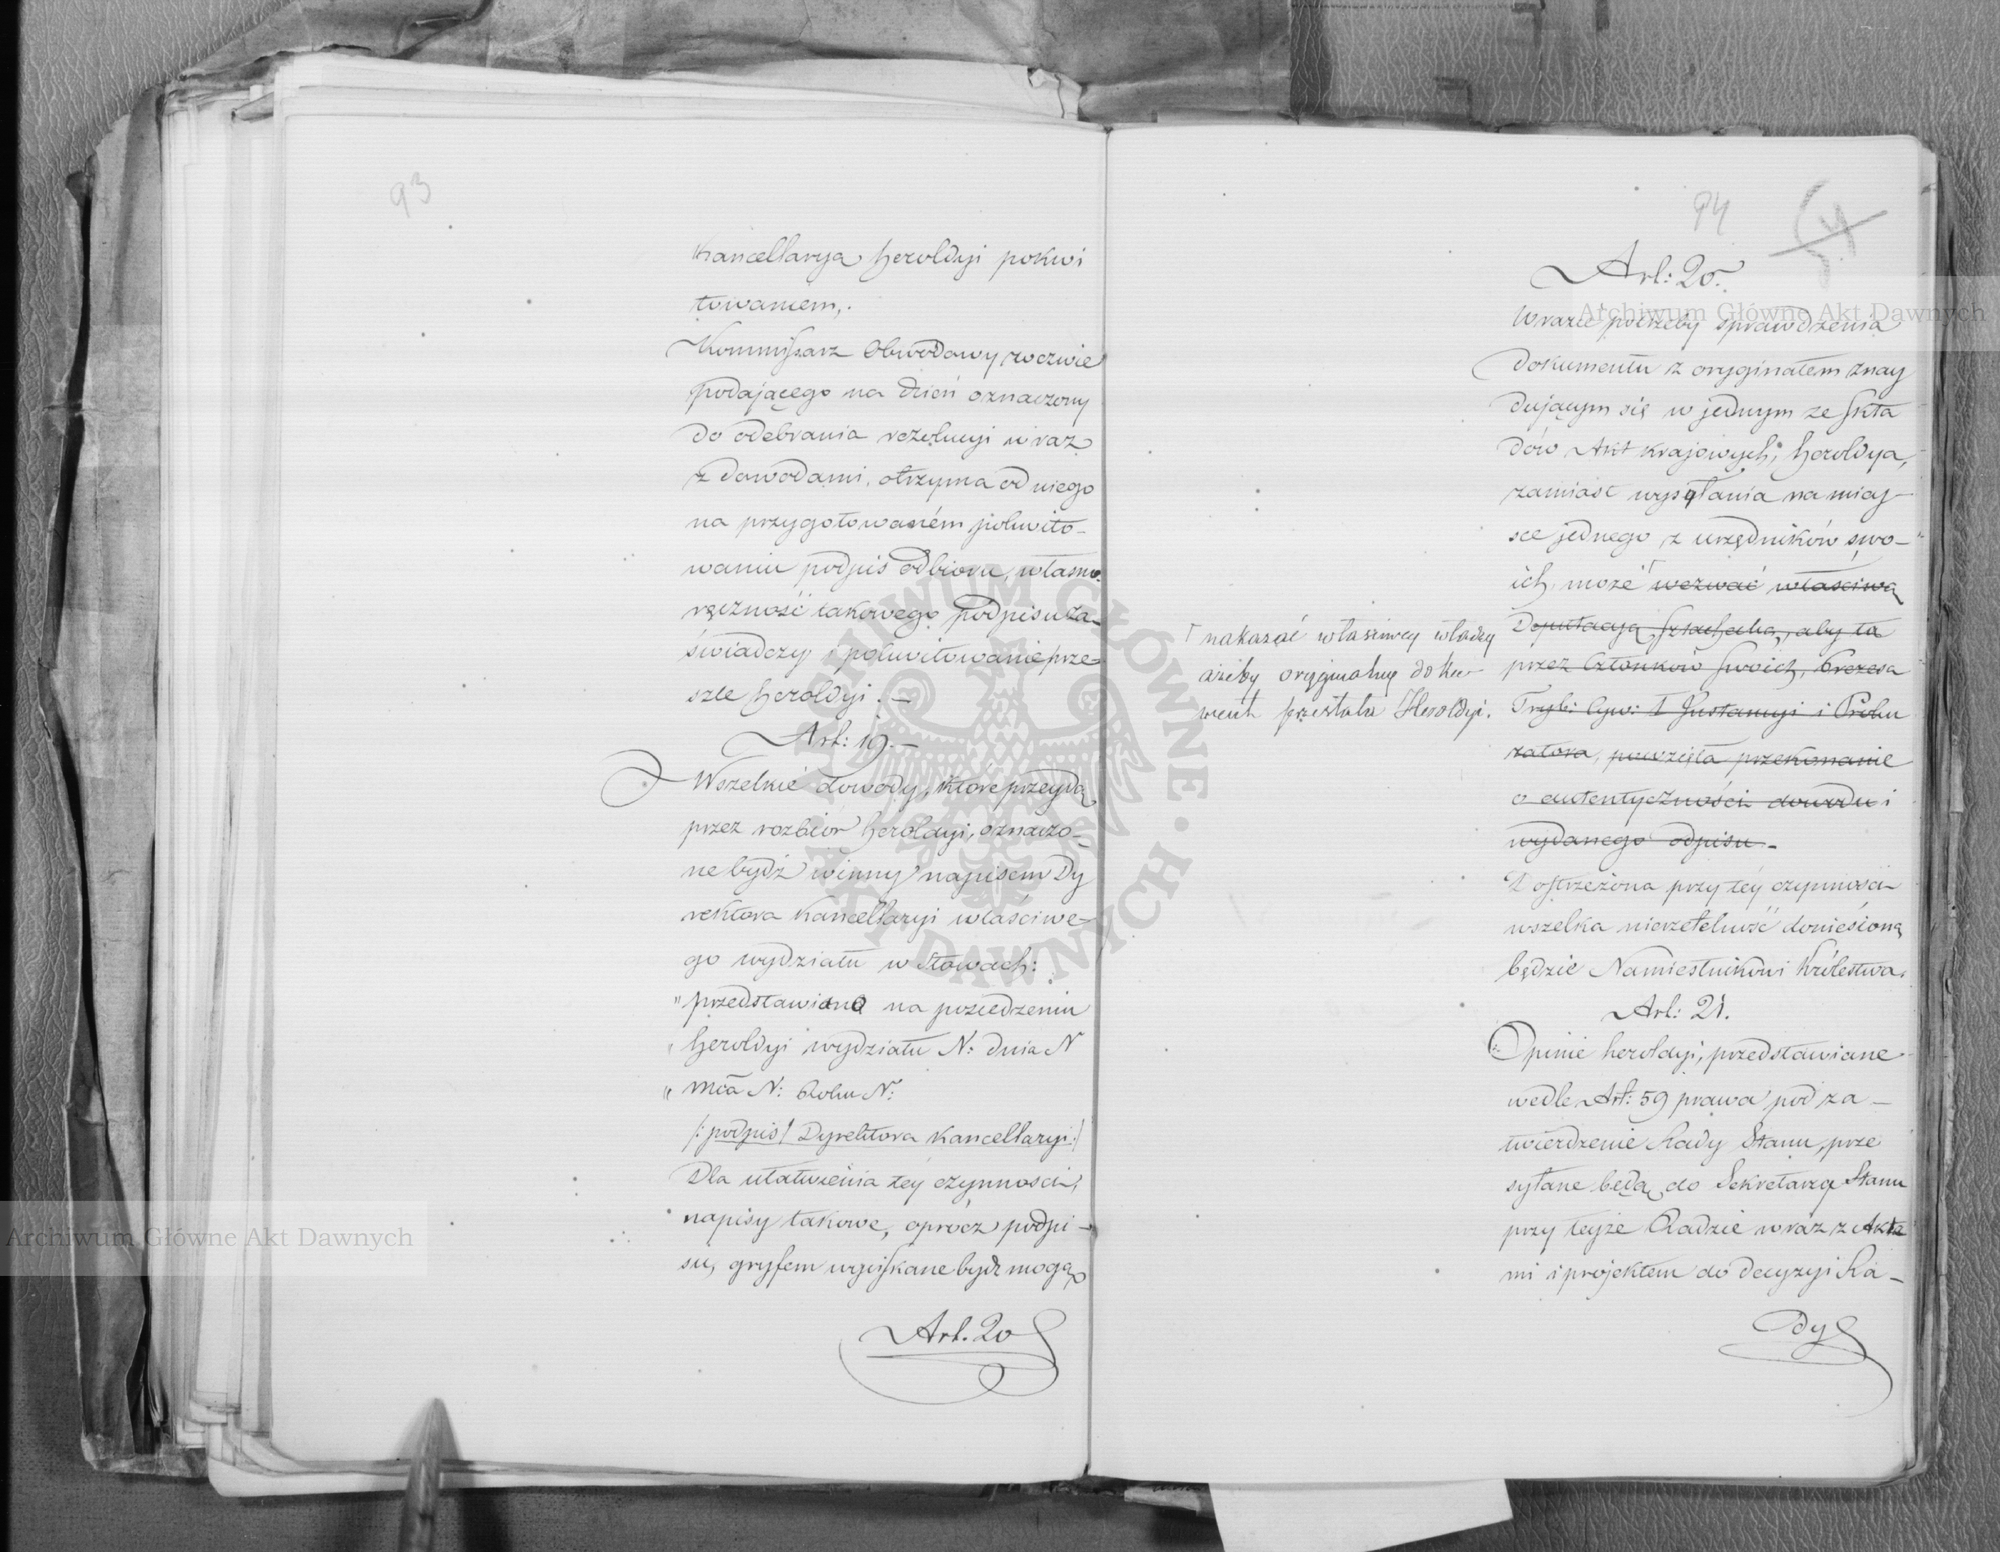 93
Kancellarya Heroldyi pokwi
towaniem.
Kommissarz Obwodowy wezwie
podającego na dzień oznaczony
do odebrania rezolucyi wraz
z dowodami, otrzyma od niego
na przygotowaném pokwito-
waniu podpis odbioru, własno
ręczność takowego podpisu za-
świadczy i pokwitowanie prze-
szle Heroldyi. —
Art: 19. —
Wszelkie dowody, które przeydą
przez rozbiór Heroldyi, oznaczo-
ne bydź winny napisem Dy
rektora Kancellaryi właściwe-
go wydziału w słowach:
"przedstawiono na posiedzeniu
"Heroldyi wydziału N: dnia N
"Mca N: Roku N:
/: podpis/ Dyrektora Kancellaryi :/
Dla ułatwienia téy czynności,
napisy takowe, oprócz podpi-
su, gryfem wyciskane bydź mogą
Art. 20
94
Art: 20.
W razie potrzeby sprawdzenia
dokumentu z oryginałem znay
dującym się w jednym ze skła
dów Akt krajowych, Heroldya,
zamiast wysłania na miey-
sce jednego z urzędników swo-
ich, może wezwać właściwą
Deputacyą Szlachecką, aby ta
przez Członków swoich, Prezesa
Tryb: Cyw: I Instancyi i Proku
ratora, powzięła przekonanie
o autentyczności dowodu i
wydanego odpisu. —
nakazać właściwey władzy
ażeby oryginalny doku-
ment przesłała Heroldyi.
Dostrzeżona przy téy czynności
wszelka nierzetelność doniesioną
będzie Namiestnikowi Królestwa.
Art: 21.
Opinie Heroldyi, przedstawiane
wedle Art: 59 prawa pod za-
twierdzenie Rady Stanu, prze
syłane będą do Sekretarza Stanu
przy teyże Radzie wraz z Akta
mi i projektem do decyzyi Ra-
dy
Archiwum Główne Akt Dawnych
Archiwum Główne Akt Dawnych
ARCHIWUM GŁÓWNE AKT DAWNYCH